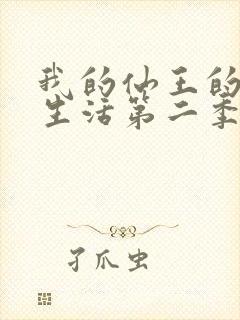 我的仙王的
生活第二季
孑爪虫